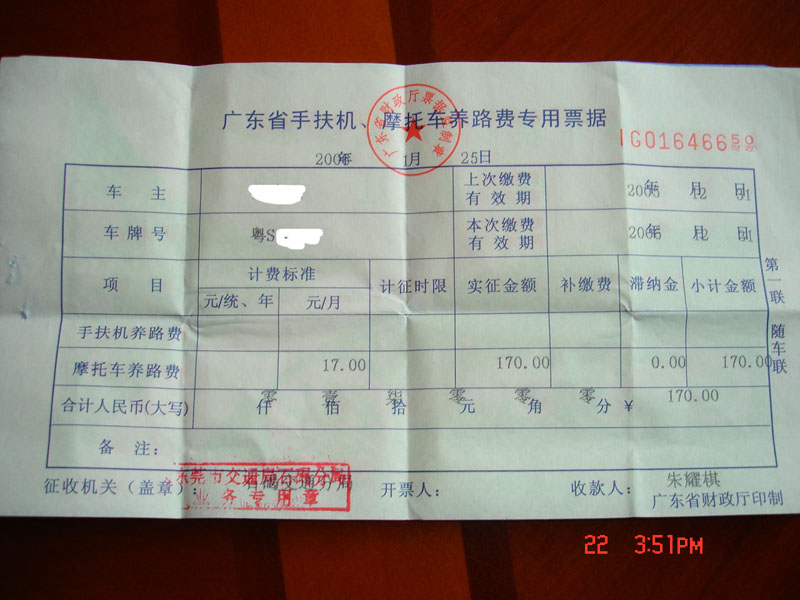 广东省手扶机、摩托车养路费专用票据
1G01646650
2006年 1月 25日
车 主 上次缴费有效期 2005年 12月 31日
车牌号 粤S 本次缴费有效期 2006年 12月 31日
项 目 计费标准 计征时限 实征金额 补缴费 滞纳金 小计金额
元/统、年 元/月
手扶机养路费
摩托车养路费 17.00 170.00 0.00 170.00
合计人民币(大写) 零仟 壹佰 柒拾 零元 零角 零分 ¥ 170.00
备 注：
征收机关（盖章）： 开票人： 收款人： 朱耀棋
业务专用章
广东省财政厅印制
第一联 随车联
22 3:51PM